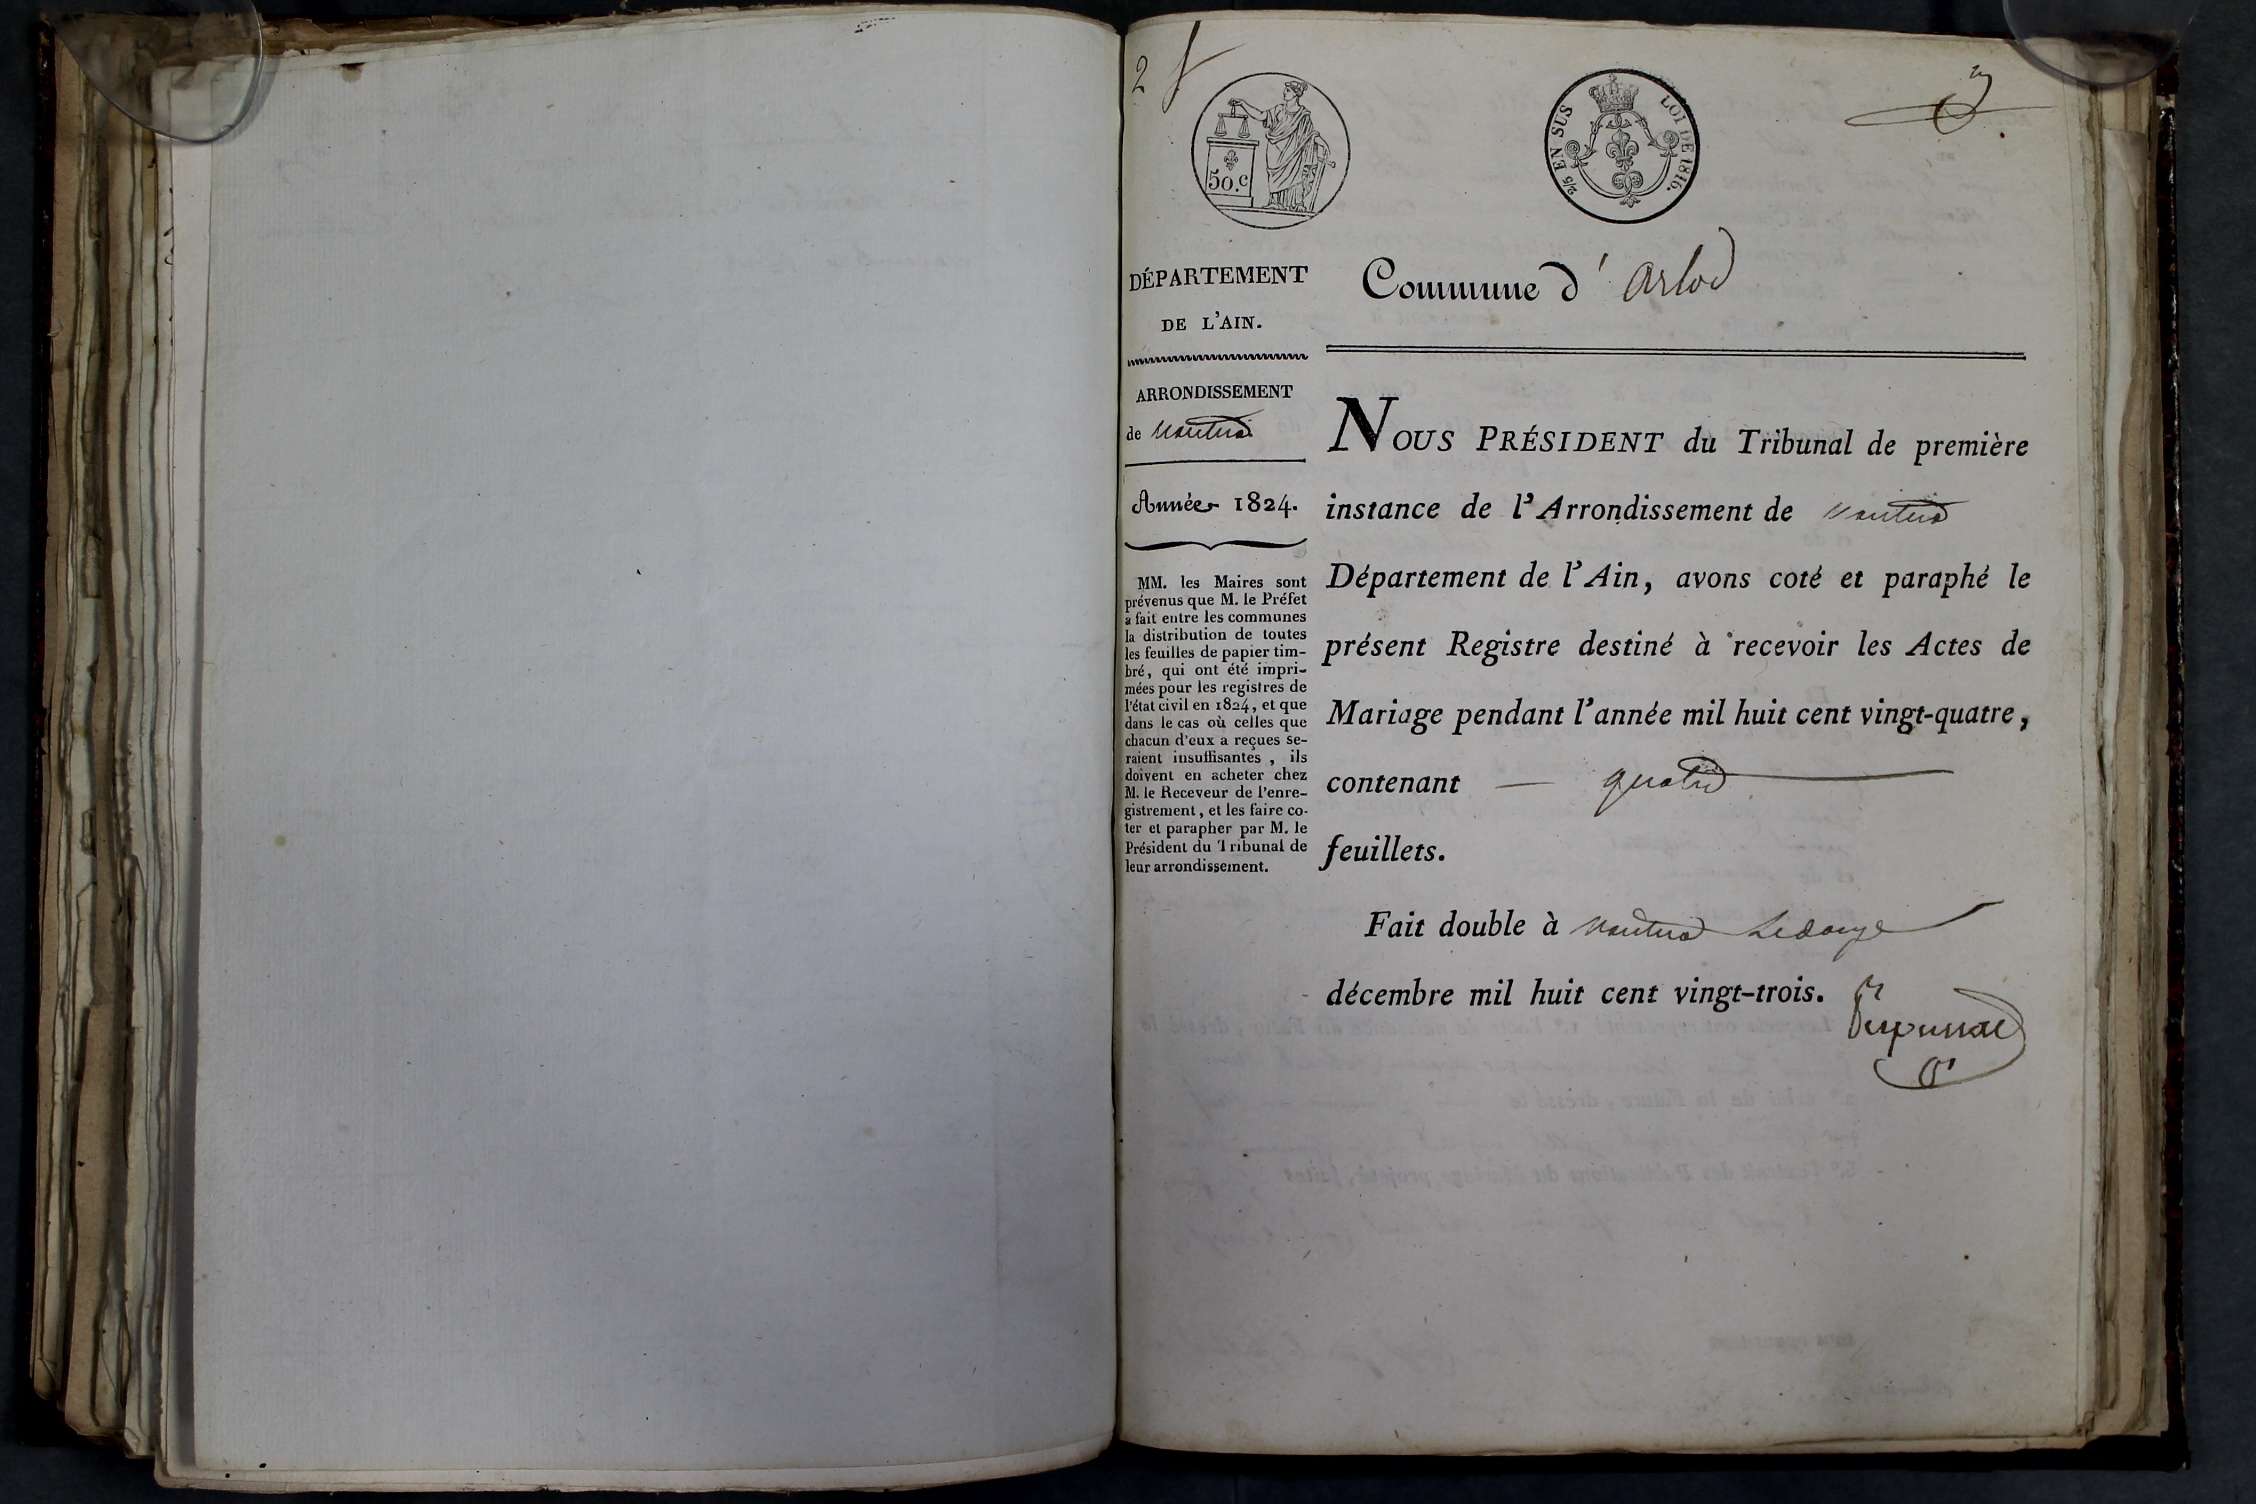 2
50.c
2/5 EN SUS
LOI DE 1816.
DÉPARTEMENT
DE L'AIN.
ARRONDISSEMENT
de Nantua
Année 1824.
MM. les Maires sont
prévenus que M. le Préfet
a fait entre les communes
la distribution de toutes
les feuilles de papier tim-
bré, qui ont été impri-
mées pour les registres de
l'état civil en 1824, et que
dans le cas où celles que
chacun d'eux a reçues se-
raient insuffisantes, ils
doivent en acheter chez
M. le Receveur de l'enre-
gistrement, et les faire co-
ter et parapher par M. le
Président du Tribunal de
leur arrondissement.
Commune d' Arlod
NOUS PRÉSIDENT du Tribunal de première
instance de l'Arrondissement de Nantua
Département de l'Ain, avons coté et paraphé le
présent Registre destiné à recevoir les Actes de
Mariage pendant l'année mil huit cent vingt-quatre,
contenant — quatre
feuillets.
Fait double à Nantua
décembre mil huit cent vingt-trois.